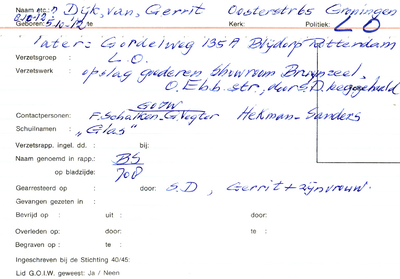 Naam etc: Dijk, van, Gerrit Oosterstr 65 Groningen
Geboren: 5-10-12 te Kerk: Politiek: LO
later: Gordelweg 135A Blijdorp Rotterdam
Verzetsgroep : L.O.
Verzetswerk : opslag goederen bouwrum Bruynzeel,
O. Ebb. str., door S.D. leeggehaald
GOUW
Contactpersonen: F. Schalken. G. Vegter Hekman-Sanders
Schuilnamen : „Glas"
Verzetsrapp. ingel. dd. : bij:
Naam genoemd in rapp.: BS
op bladzijde: 708
Gearresteerd op : door: S.D, Gerrit + zijn vrouw.
Gevangen gezeten in :
Bevrijd op : uit : door:
Overleden op: door: te :
Begraven op : te :
Ingeschreven bij de Stichting 40/45:
Lid G.O.I.W. geweest: Ja / Neen